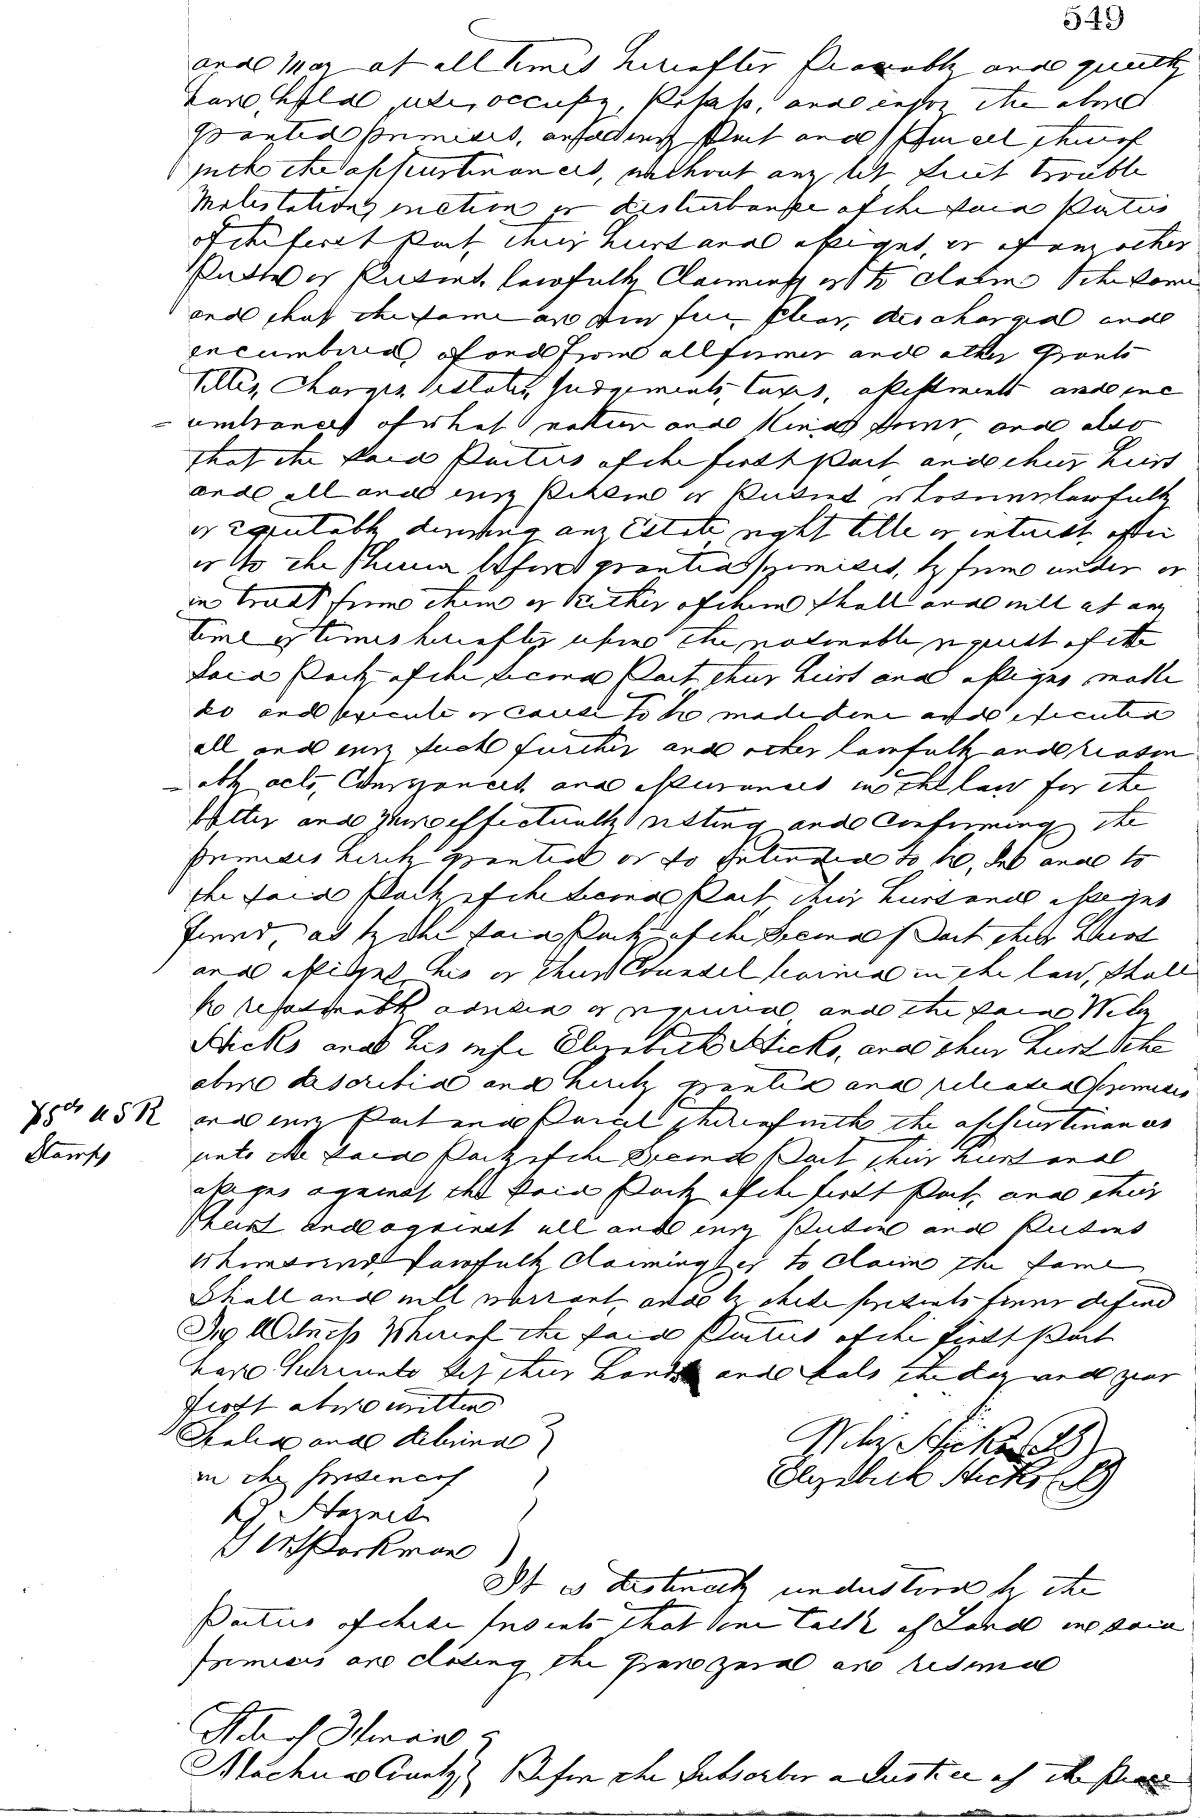 549
and May at all times hereafter Peaceably and quietly
have, hold, use, occupy, Possess, and enjoy the above
granted premises, and every Part and Parcel thereof
with the appurtenances, without any let, suit trouble
Molestation, eviction or disturbance of the said Parties
of the first Part, their heirs and assigns, or of any other
Person or Persons, lawfully Claiming or to claim the same
and that the same are now free, Clear, discharged and
encumbered, of and from all former and other Grants
titles, Charges, estates, Judgements, taxes, assessments and inc
- umbrances of what nature and Kind soever, and also
that the said Parties of the first Part and their heirs
and all and every Person or Persons whosoever lawfully
or equitably deriving any Estate right title or interest of in
or to the herein before granted premises, by from under or
in trust from them or either of them shall and will at any
time or times hereafter upon the reasonable request of the
said Party of the second Part, their heirs and assigns make
do and execute or cause to be made done and executed
all and every such further and other lawfully and reason
- ably acts, Conveyances and assurances in the law for the
better and more effectually vesting and Confirming the
premises hereby granted or so intended to be, In and to
the said Party of the second Part, their heirs and assigns
forever, as by the said Party of the Second Part their heirs
and assigns his or their Counsel learned in the law, shall
be reasonably advised or required, and the said Wiley
Hicks and his wife Elizabeth Hicks, and their heirs the
above described and hereby granted and released premises
75cts U S R
Stamps
and every Part and Parcel thereof with the appurtenances
unto the said Party of the Second Part, their heirs and
assigns against the said Party of the first Part, and their
heirs and against all and every Person and Persons
whomsoever, lawfully Claiming or to claim the same
Shall and will warrant, and by these presents forever defend
In Witness Whereof the said Parties of the first Part
have hereunto set their hands and seals the day and year
first above written
Sealed and delivered
in the presence of
Wiley Hicks (LS)
Elizabeth Hicks (LS)
Haynes
Parkman
It is distinctly understood by the
Parties of these presents that one of Land in said
premises are closing the graveyard are reserved
State of Florida
Alachua County, Before the Subscriber a Justice of the Peace